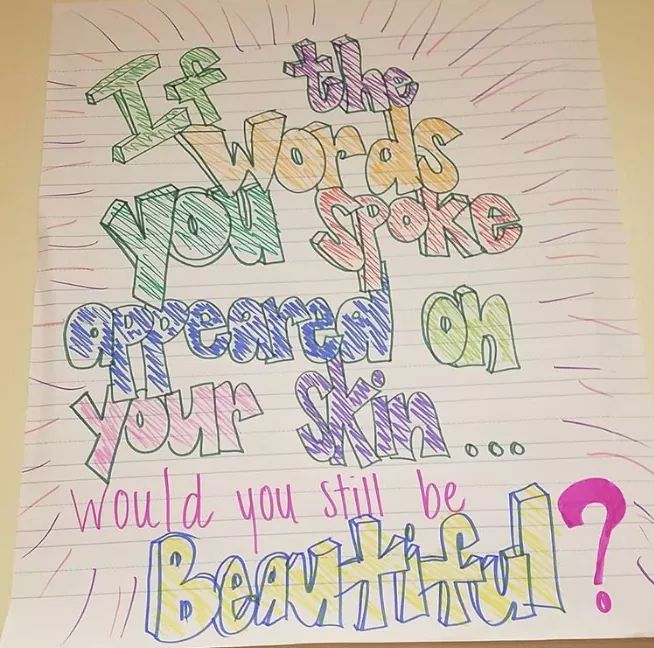 If the
words
you spoke
appeared on
your skin...
would you still be
Beautiful?